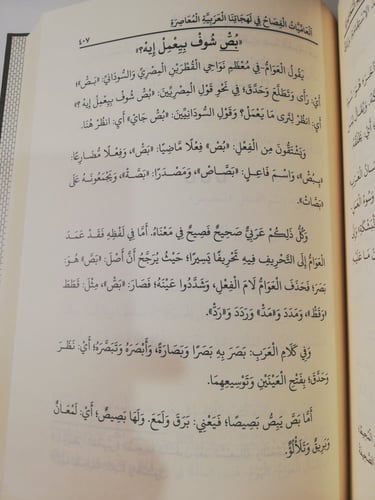 العَامِّيَّاتُ الفِصَاحُ فِي لَهَجَاتِنَا العَرَبِيَّةِ المُعَاصِرَةِ
٤٠٧
«بُصُّ شُوفْ بِيِعْمِلْ إِيهْ؟»
يَقُولُ العَوَامُّ-فِي مُعْظَمِ نَوَاحِي القُطْرَيْنِ المِصْرِيِّ وَالسُّودَانِيِّ: «بَصَّ»؛
أَيْ: رَأَى وَتَطَلَّعَ وَحَدَّقَ؛ فِي نَحْوِ قَوْلِ المِصْرِيِّينَ: «بُصُّ شُوفْ بِيِعْمِلْ إِيهْ؟
أَيْ: انْظُرْ لِتَرَى مَا يَعْمَلُ؟ وَقَوْلِ السُّودَانِيِّينَ: «بُصُّ جَايْ» أَيِ: انْظُرْ هُنَا.
وَيَشْتَقُّونَ مِنَ الفِعْلِ: «بُصُّ» فِعْلًا مَاضِيًا: «بَصَّ»، وَفِعْلًا مُضَارِعًا:
«يِبُصُّ»، وَاسْمَ فَاعِلٍ: «بَصَّاصٌ»، وَمَصْدَرًا: «بَصَّةْ»، وَيَجْمَعُونَهُ عَلَى
«بَصَّاتْ».
وَكُلُّ ذَلِكُمْ عَرَبِيٌّ صَحِيحٌ فَصِيحٌ فِي مَعْنَاهُ. أَمَّا فِي لَفْظِهِ فَقَدْ عَمَدَ
العَوَامُّ إِلَى التَّحْرِيفِ فِيهِ تَحْرِيفًا يَسِيرًا؛ حَيْثُ يُرَجَّحُ أَنَّ أَصْلَ: «بَصَّ» هُوَ:
بَصَرَ؛ فَحَذَفَ العَوَامُّ لَامَ الفِعْلِ، وَشَدَّدُوا عَيْنَهُ؛ فَصَارَ: «بَصَّ»، مِثْلَ: قَطَطَ
«وَقَطَّ»، وَمَدَدَ وَ«مَدَّ» وَرَدَدَ وَ«رَدَّ».
وَفِي كَلَامِ العَرَبِ: بَصَرَ بِهِ بَصَرًا وَبَصَارَةً، وَأَبْصَرَهُ وَتَبَصَّرَهُ؛ أَيْ: نَظَرَ
وَحَدَّقَ؛ بِفَتْحِ العَيْنَيْنِ وَتَوْسِيعِهِمَا.
أَمَّا بَصَّ يَبِصُّ بَصِيصًا؛ فَيَعْنِي: بَرَقَ وَلَمَعَ. وَلَهَا بَصِيصٌ؛ أَيْ: لَمَعَانٌ
وَبَرِيقٌ وَتَلَأْلُؤٌ.